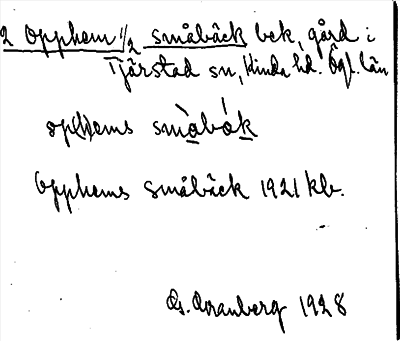 2 Opphem 1/2 småbäck bek, gård i
Tjärstad sn, Kinda hd. Ögl. län
op(h)ems smàbák
Opphems småbäck 1921 kb.
G. Granberg 1928